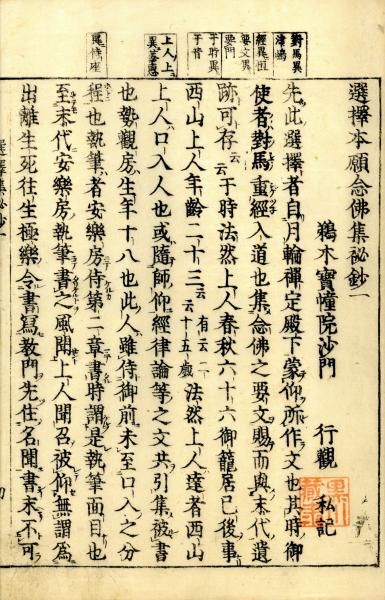 對馬異
津嶋
經異恒
要文異
要門
于時異
于昔
上人上
異善惠
異侍座
選擇本願念佛集祕鈔一
鵜木寶幢院沙門 行觀 私記
先此選擇者自月輪禪定殿下蒙仰所作文也其時御
使者對馬重經入道也集念佛之要文賜而與末代遺
跡可存云云于時法然上人春秋六十六御籠居已後事
西山上人年齡二十三云云有云二十五歲法然上人達者西山
上人口入人也或隨師仰經律論等之文共引集被書
也勢觀房生年十八也此人雖侍御前未至口入之分
程也執筆者安樂房侍第二章書時謂是執筆面目也
至末代安樂房執筆書之風聞上人聞召被仰無謂爲
出離生死往生極樂令書寫教門先住名聞書末不可
選擇集祕鈔一